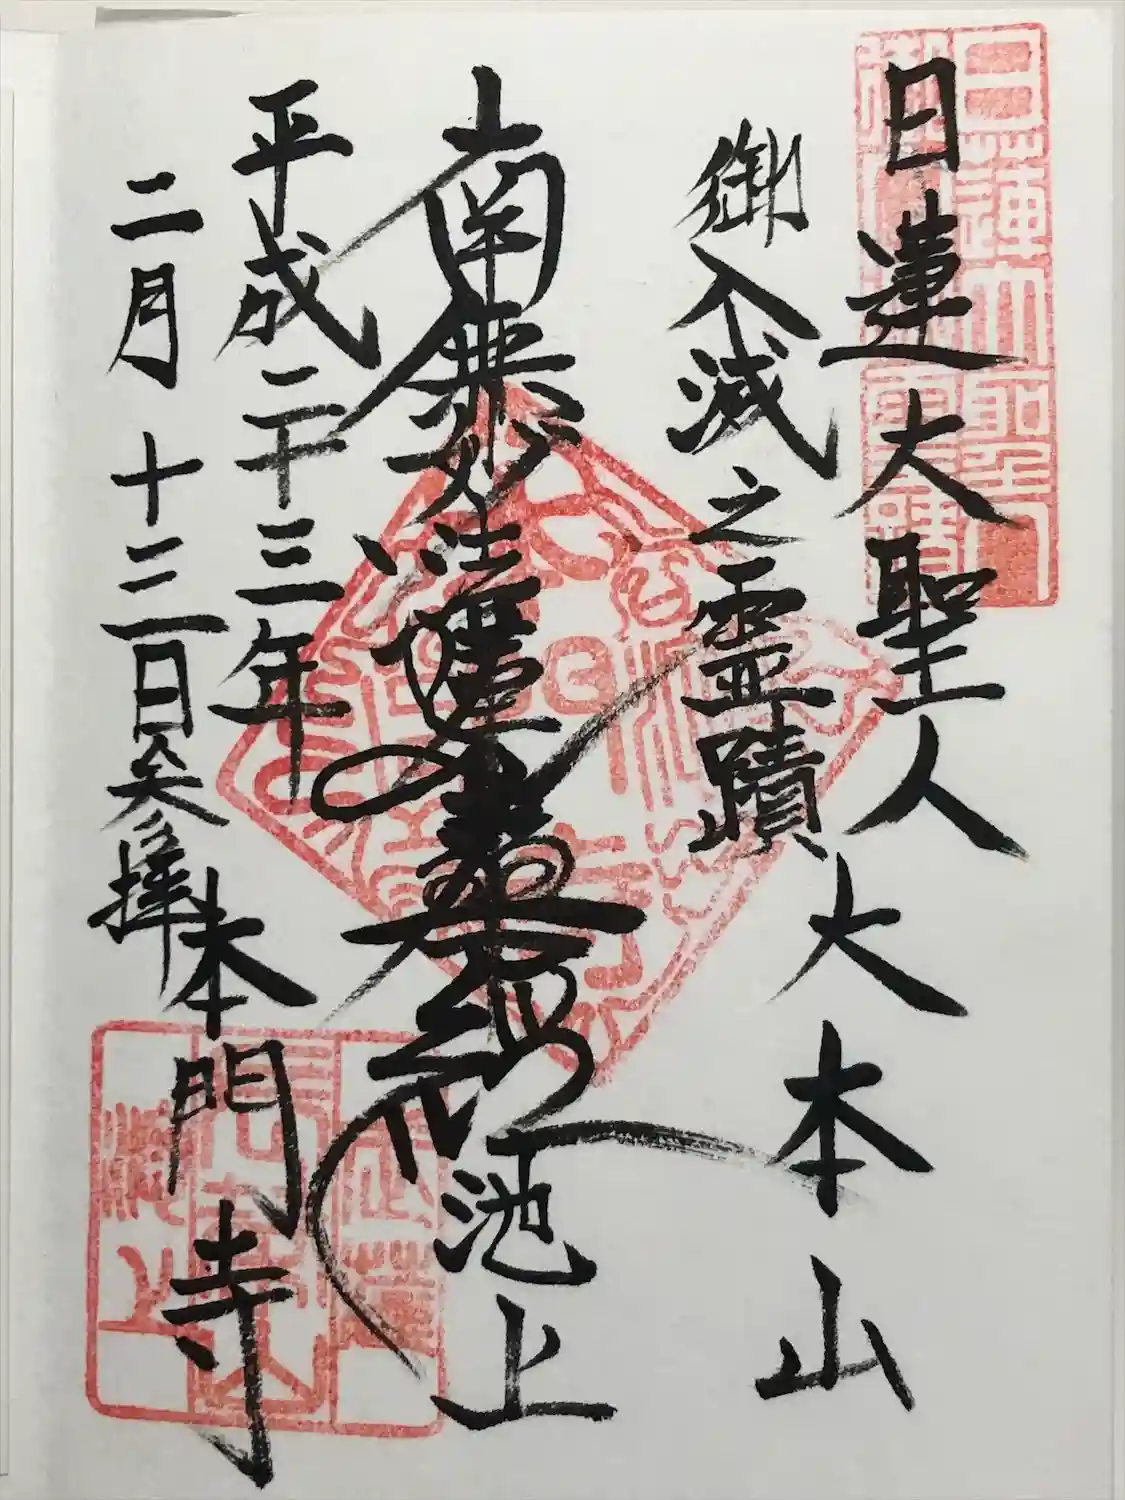 日蓮大聖人
御入滅之霊蹟
大本山
南無妙法蓮華経
池上
本門寺
平成二十三年
二月十二日参拝
日蓮大聖人
池上